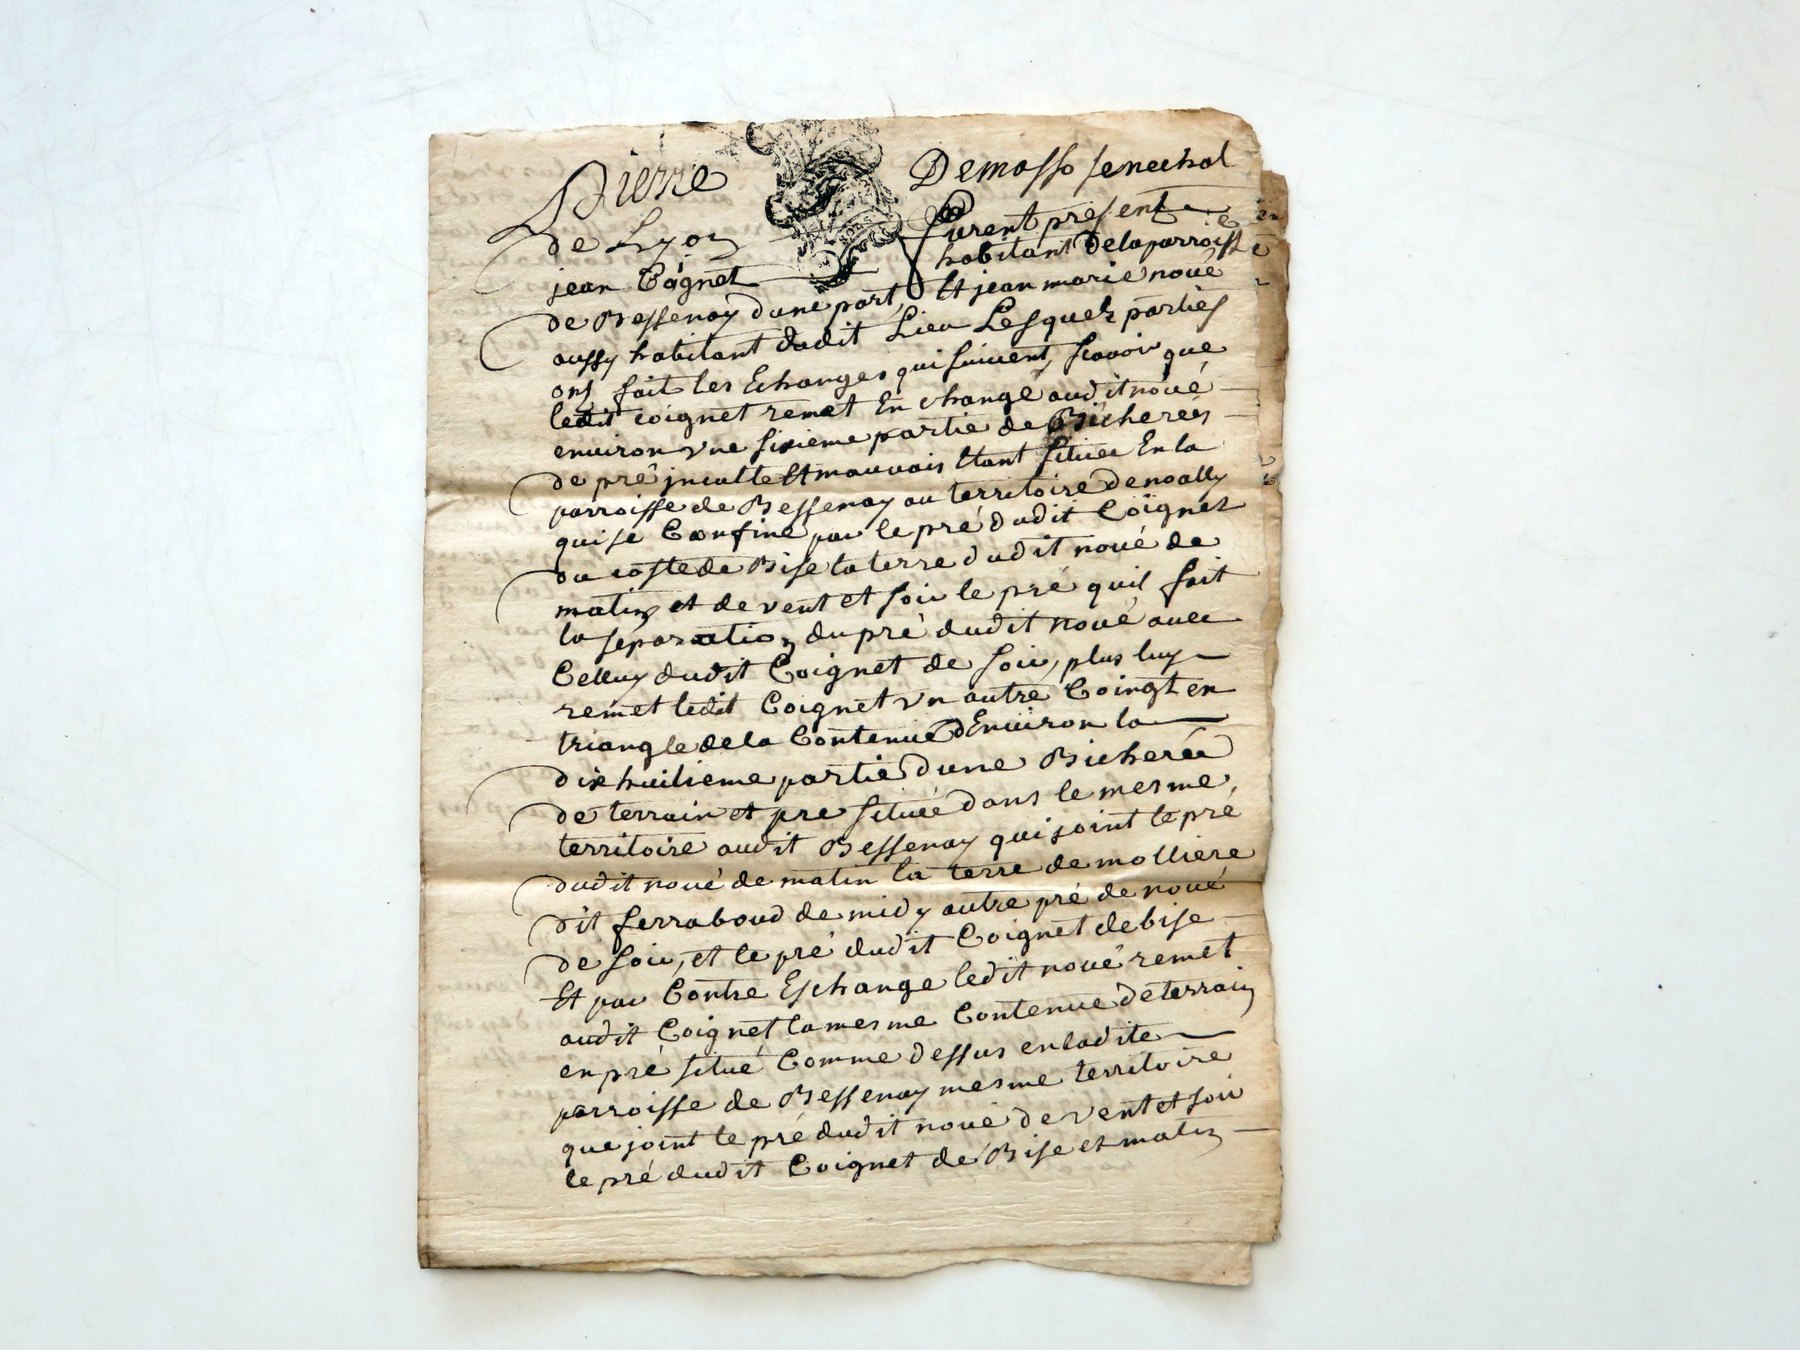 Pierre Demasso senechal
de Lyon furent present
jean Coignet habitant de la parroisse
de Bessenay dune part, Et jean marie noué
aussy habitant dudit Lieu Lesquels parties
ont fait les Echanges qui suivent, scavoir que
ledit coignet remet En change audit noué
environ vne sixieme partie de Bicherés
de pré jnculte Et mauvais Etant situee En la
parroisse de Bessenay au territoiré de noally
qui se Confine par le pré dudit Coignet
du costé de Bise la terre dudit noué de
matin et de vent et soir le pré quil fait
la séparation du pré dudit noué avec
Celluy dudit Coignet de soir, plus luy
remet ledit Coignet vn autre Coingt en
triangle de la Contenue dEnviron la
dix huitieme partie dune Bicherée
de terrain et pre située dans le mesme
territoire audit Bessenay qui joint le pré
dudit noué de matin la terre de molliere
dit ferraboud de midy autre pré de noué
de soir, et le pré dudit Coignet de bise
Et par Contre Eschange ledit noué remet
audit Coignet la mesme Contenue de terrain
en pré situé Comme dessus en ladite
parroisse de Bessenay mesme territoire
que joint le pré dudit noué de vent et soir
le pré dudit Coignet de Bise et matin